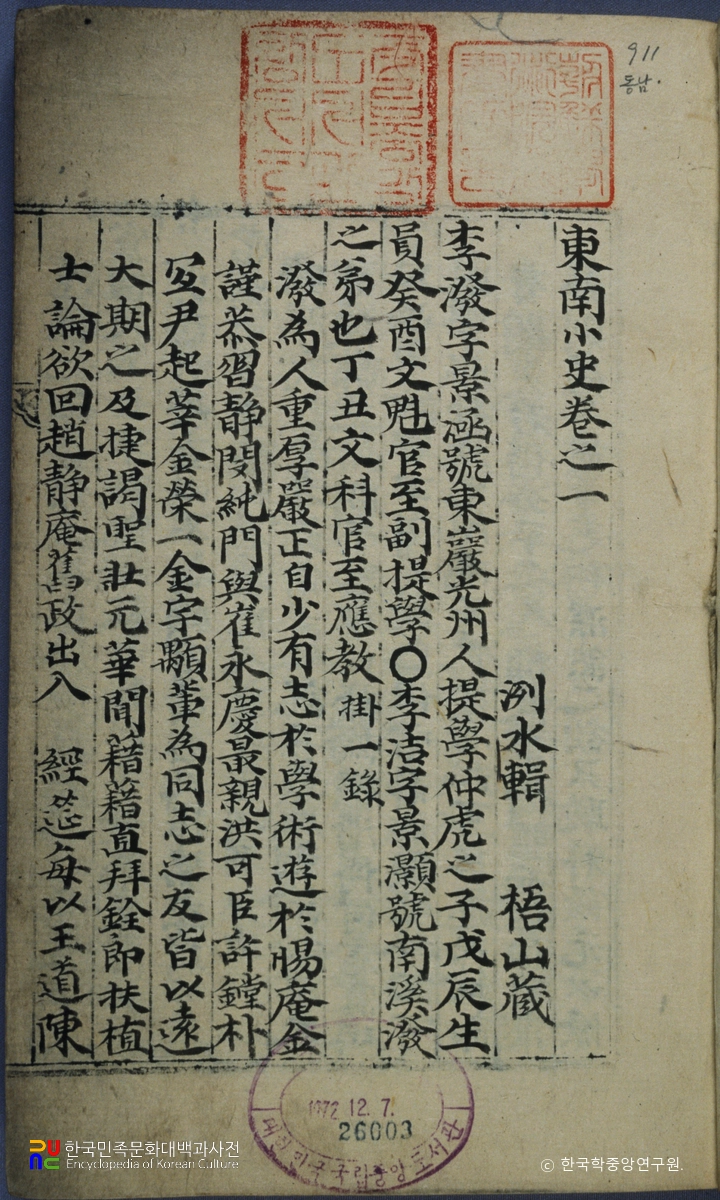 東南小史卷之一
洌水輯 梧山蔵
李潑字景涵號東巖光州人提學仲虎之子戊辰生
員癸酉文魁官至副提學〇李洁字景灝號南溪潑
之弟也丁丑文科官至應教 掛一錄
潑為人重厚嚴正自少有志於學術遊於賜庵金
謹恭習靜閔純門與崔永慶最親洪可臣許鏜朴
宜尹起莘金榮一金宇顒輩為同志之友皆以遠
大期之及捷謁聖壯元華聞藉藉直拜銓郎扶植
士論欲回趙靜庵舊政出入 經莚每以王道陳
911
동남.
1972 12. 7.
26003
대한민국국립중앙도서관
한국민족문화대백과사전
Encyclopedia of Korean Culture
ⓒ 한국학중앙연구원.